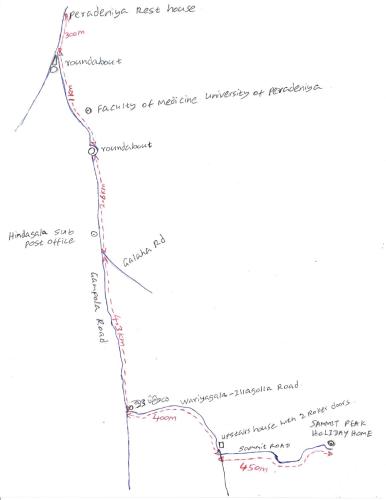 Peradeniya Rest house
300m
roundabout
1km
Faculty of Medicine University of Peradeniya
roundabout
Hindagala Sub
Post office
Galaha Rd
Gampola Road
4.3km
Wariyagala-Illagolla Road
400m
upstairs house with 2 Roller doors
SUMMIT ROAD
SAMMIT PEAK
HOLIDAY HOME
450m